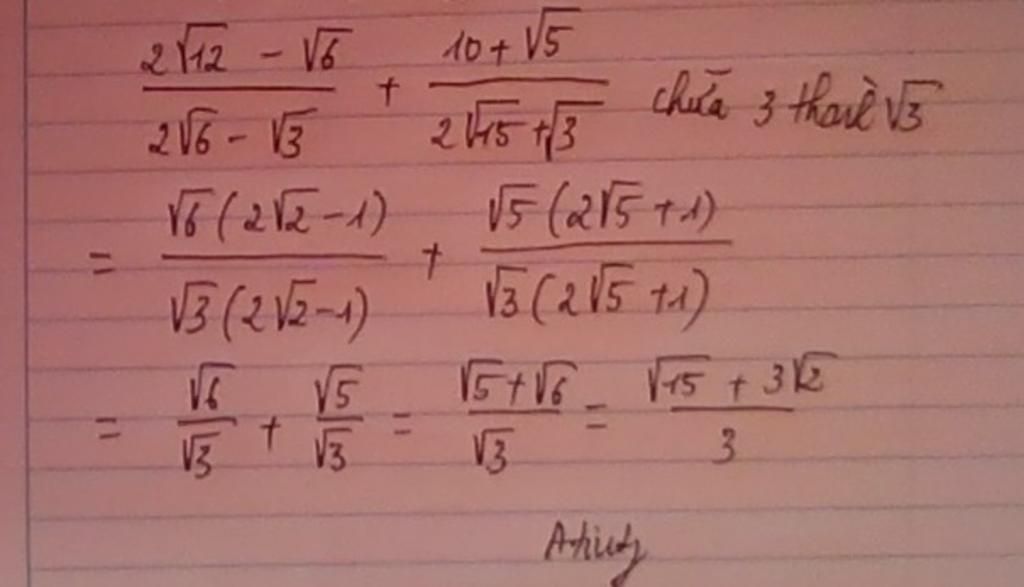 \frac{2\sqrt{12} - \sqrt{6}}{2\sqrt{6} - \sqrt{3}} + \frac{10 + \sqrt{5}}{2\sqrt{15} + \sqrt{3}} chữa 3 thành \sqrt{3}
= \frac{\sqrt{6}(2\sqrt{2} - 1)}{\sqrt{3}(2\sqrt{2} - 1)} + \frac{\sqrt{5}(2\sqrt{5} + 1)}{\sqrt{3}(2\sqrt{5} + 1)}
= \frac{\sqrt{6}}{\sqrt{3}} + \frac{\sqrt{5}}{\sqrt{3}} = \frac{\sqrt{5} + \sqrt{6}}{\sqrt{3}} = \frac{\sqrt{15} + 3\sqrt{2}}{3}